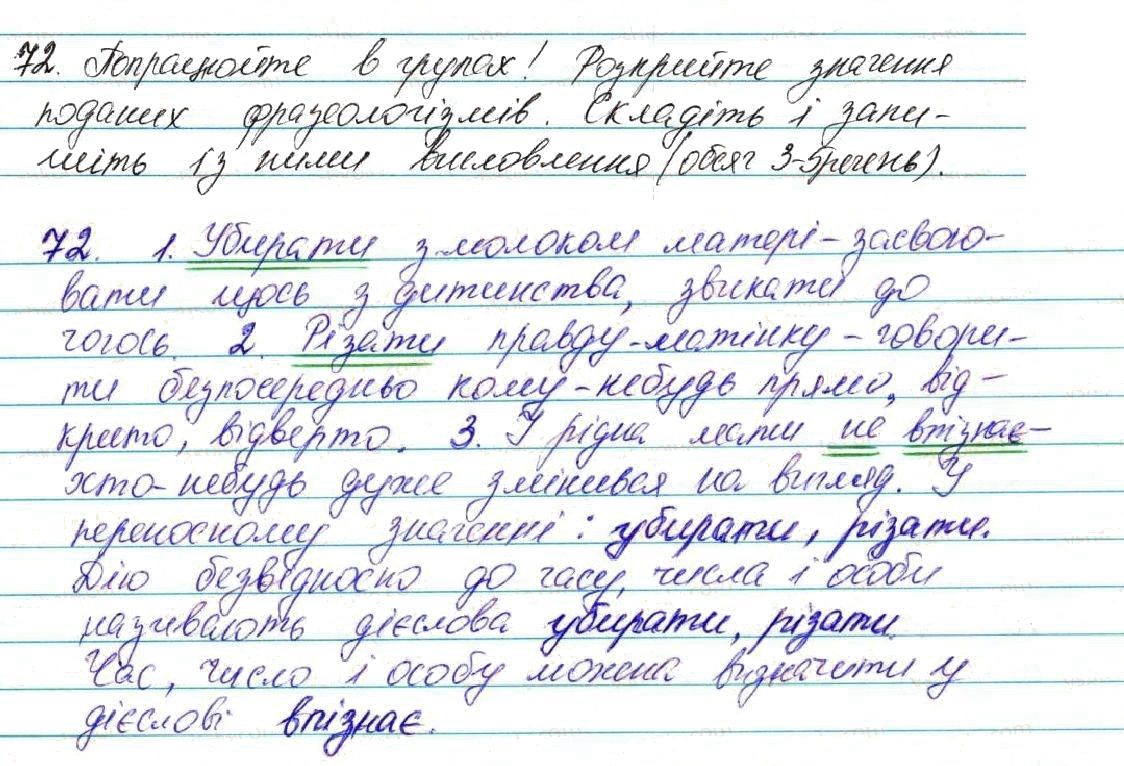 72. Попрацюйте в групах! Розкрийте значення
поданих фразеологізмів. Складіть і запи-
шіть із ними висловлення (обсяг 3-5 речень).
72. 1. Убирати з молоком матері - засвою-
вати щось з дитинства, звикати до
чогось. 2. Різати правду-матінку - говори-
ти безпосередньо кому-небудь прямо, від-
крито, відверто. 3. І рідна мати не впізнає -
хто-небудь дуже змінився на вигляд. У
переносному значенні: убирати, різати.
Дію безвідносно до часу, числа і особи
називають дієслова убирати, різати.
Час, число і особу можна визначити у
дієслові впізнає.